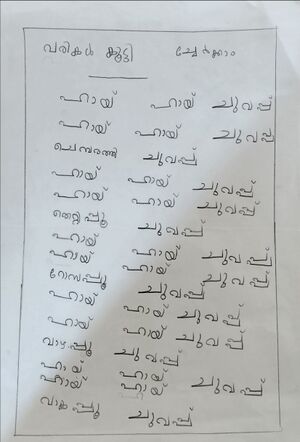 വരികൾ കൂട്ടി ചേർക്കാം
ഹായ് ഹായ് ചുവപ്പ്
ഹായ് ഹായ് ചുവപ്പ്
ചെമ്പരത്തി ചുവപ്പ്
ഹായ് ഹായ് ചുവപ്പ്
ഹായ് ഹായ് ചുവപ്പ്
തെറ്റിപ്പൂ ചുവപ്പ്
ഹായ് ഹായ് ചുവപ്പ്
ഹായ് ഹായ് ചുവപ്പ്
റോസപ്പൂ ചുവപ്പ്
ഹായ് ഹായ് ചുവപ്പ്
ഹായ് ഹായ് ചുവപ്പ്
വാഴപ്പൂ ചുവപ്പ്
ഹായ് ഹായ്
ഹായ് ഹായ് ചുവപ്പ്
വാകപ്പൂ ചുവപ്പ്